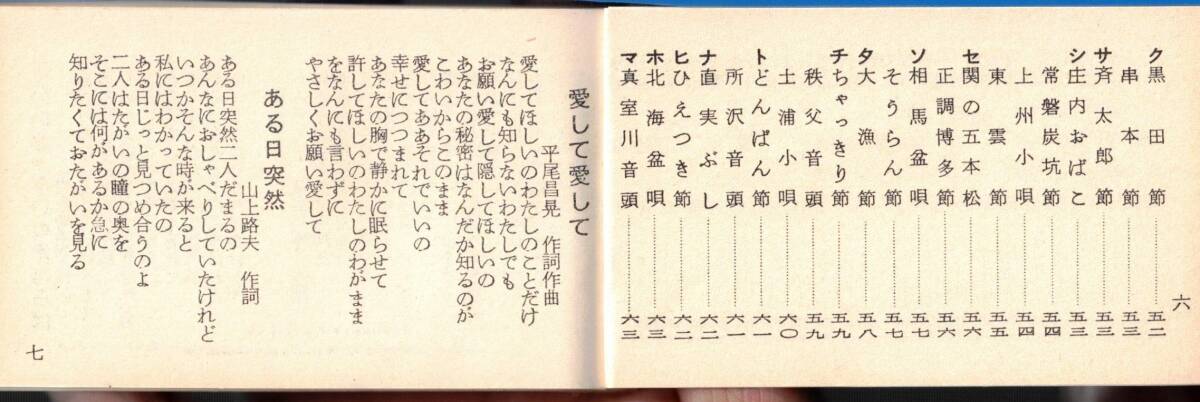 六
ク黒田節……五二
串本節……五三
サ斉太郎節……五三
シ庄内おばこ……五三
常磐炭坑節……五四
上州小唄……五四
東雲節……五五
セ関の五本松……五六
正調博多節……五六
ソ相馬盆唄……五七
そうらん節……五七
タ大漁節……五八
チちゃっきり節……五九
秩父音頭……五九
土浦小唄……六〇
トどんぱん節……六一
所沢音頭……六一
ナ直実ぶし……六二
ヒひえつき節……六二
ホ北海盆唄……六三
マ真室川音頭……六三
愛して愛して
平尾昌晃 作詞作曲
愛してほしいのわたしのことだけ
なんにも知らないわたしでも
お願い愛して隠してほしいの
あなたの秘密はなんだか知るのが
こわいからこのまま
愛してああそれでいいの
幸せにつつまれて
あなたの胸で静かに眠らせて
許してほしいのわたしのわがまま
をなんにも言わずに
やさしくお願い愛して
ある日突然
山上路夫 作詞
ある日突然二人だまるの
あんなにおしゃべりしていたけれど
いつかそんな時が来ると
私にはわかっていたの
ある日じっと見つめ合うのよ
二人はたがいの瞳の奥を
そこには何があるか急に
知りたくておたがいを見る
七